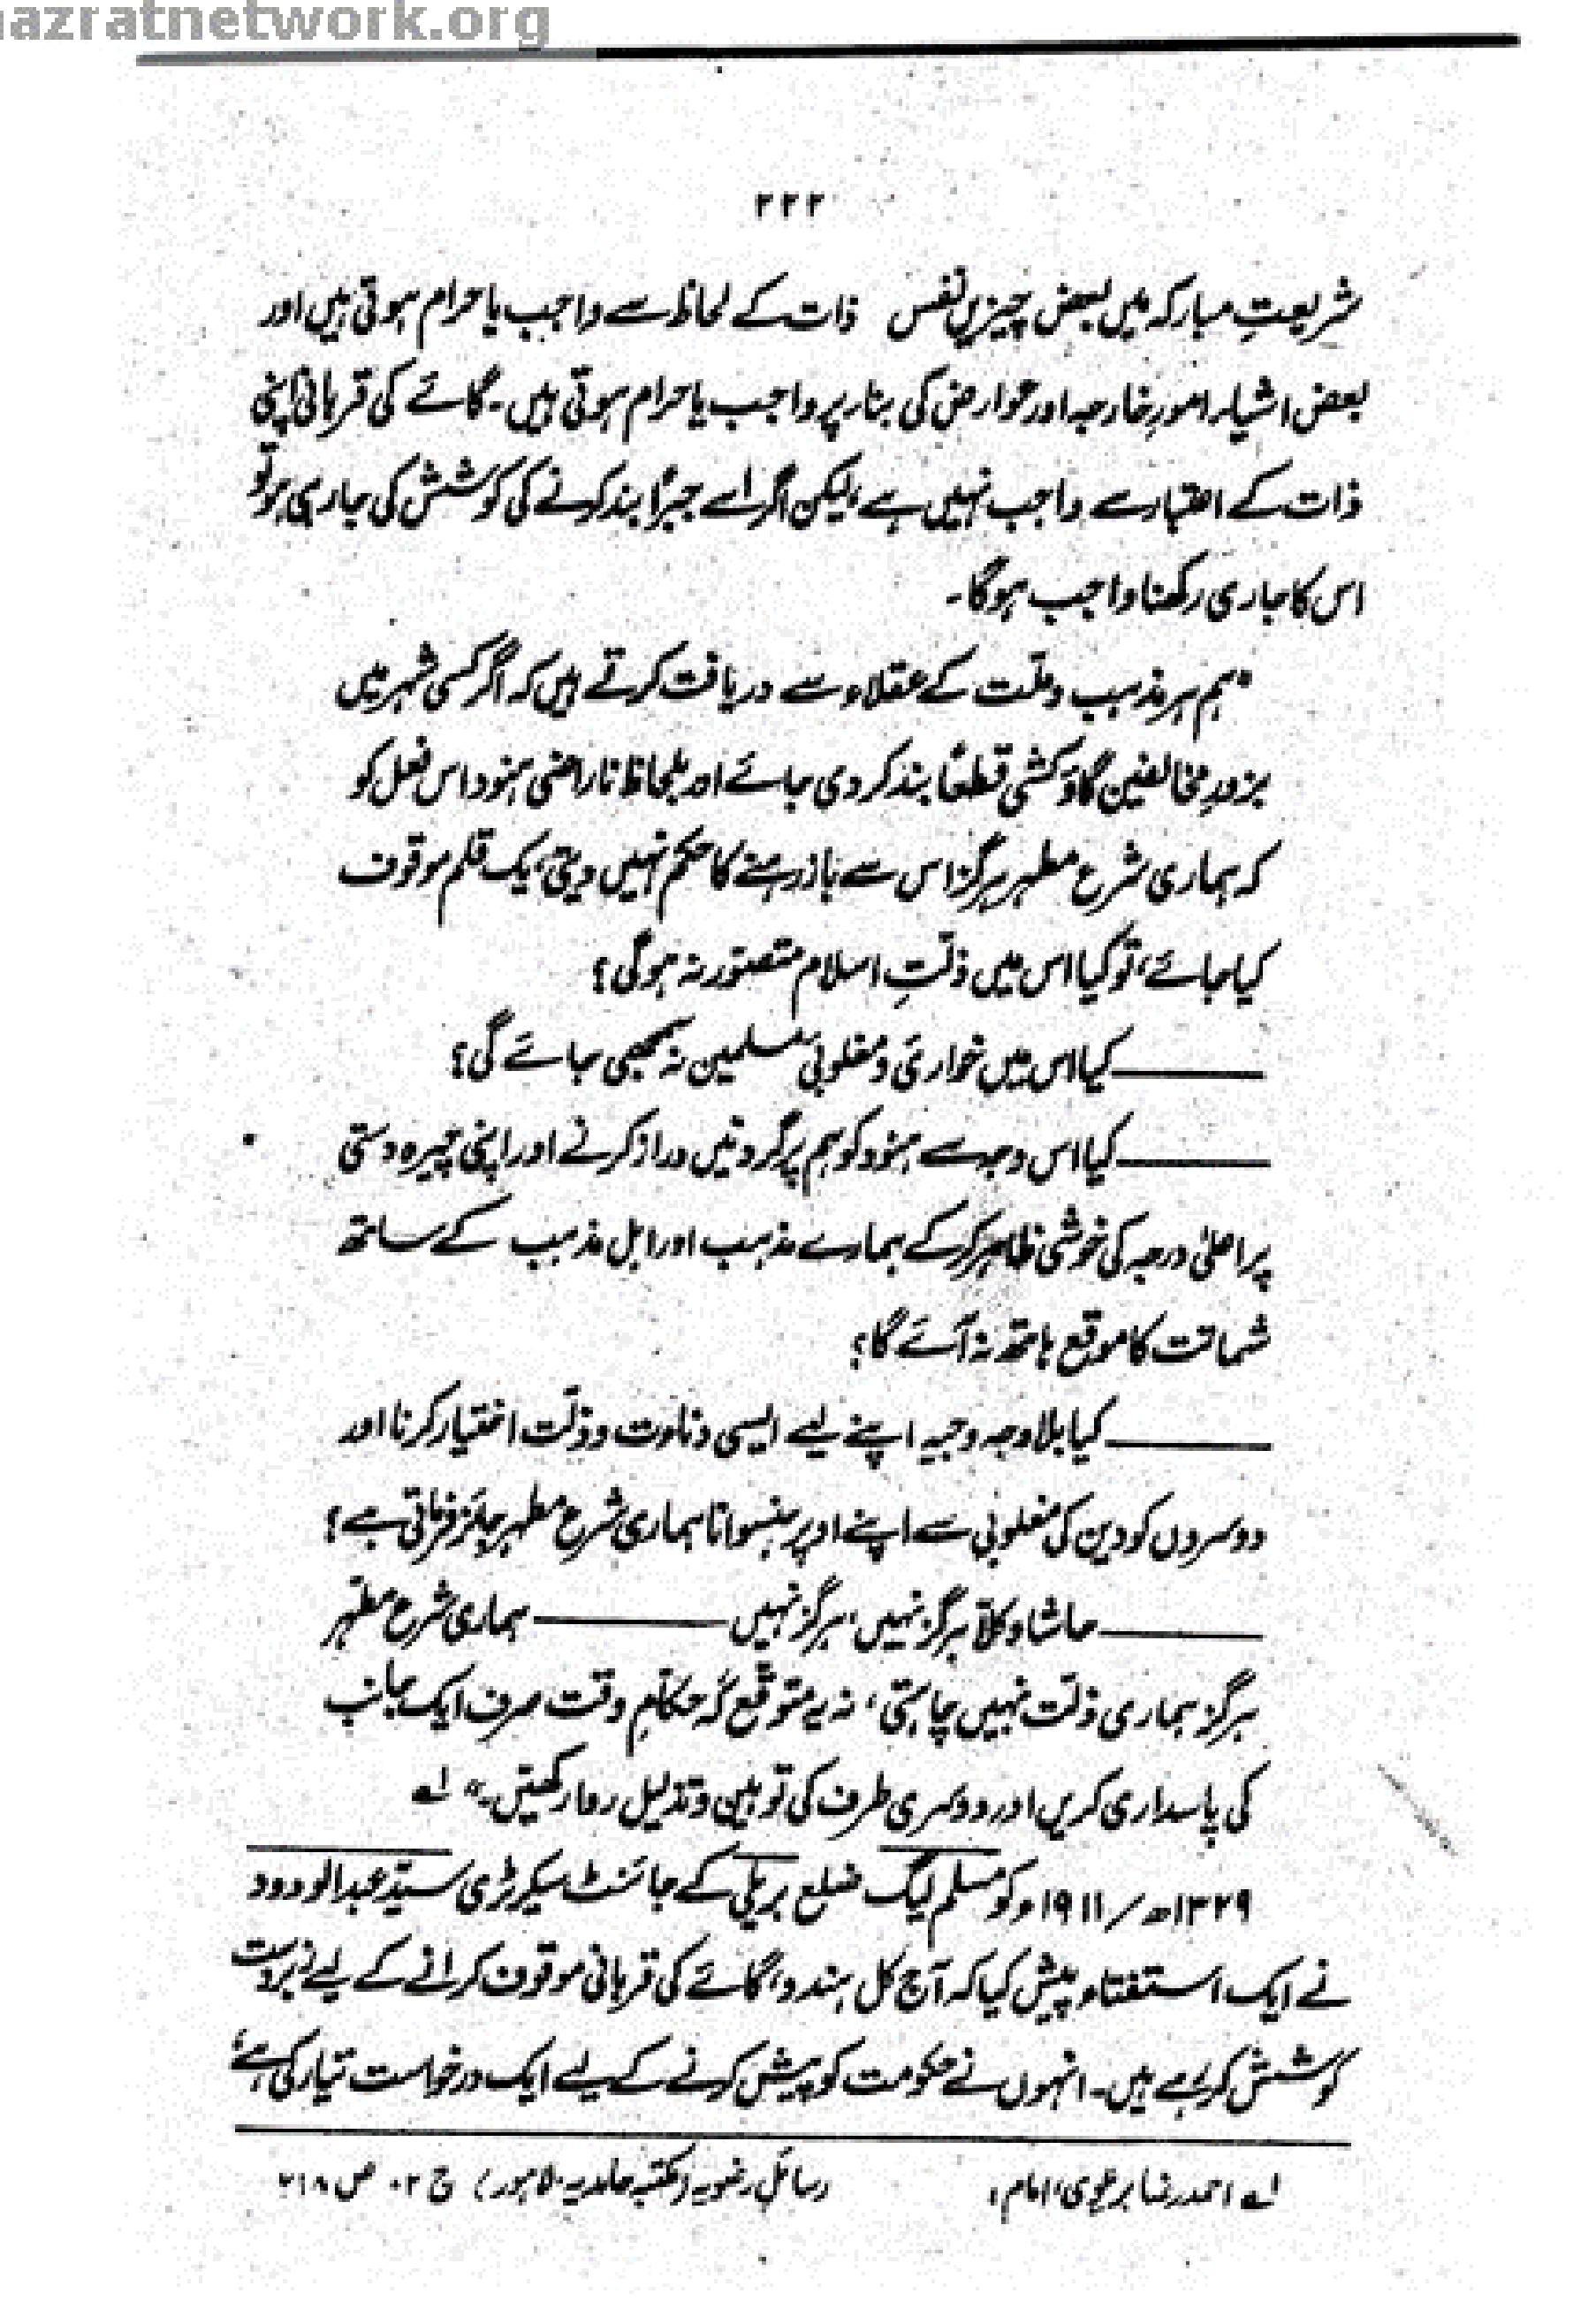 nazratnetwork.org
۲۲۲
شریعتِ مبارکہ میں بعض چیزیں نفس ذات کے لحاظ سے واجب یا حرام ہوتی ہیں اور
بعض اشیاء امورِ خارجہ اور عوارض کی بناء پر واجب یا حرام ہوتی ہیں۔ گائے کی قربانی اپنی
ذات کے اعتبار سے واجب نہیں ہے، لیکن اگر اسے جبراً بند کرنے کی کوشش کی جا رہی ہو تو
اس کا جاری رکھنا واجب ہوگا۔
"ہم ہر مذہب و ملّت کے عقلاء سے دریافت کرتے ہیں کہ اگر کسی شہر میں
بزورِ مخالفین گاؤ کشی قطعاً بند کر دی جائے اور بلحاظ ناراضی ہنود اس فعل کو
کہ ہماری شرع مطہر ہرگز اس سے باز رہنے کا حکم نہیں دیتی، یک قلم موقوف
کیا جائے، تو کیا اس میں ذلّتِ اسلام متصوّر نہ ہوگی؟
——— کیا اس میں خواری و مغلوبی مسلمین نہ سمجھی جائے گی؟
——— کیا اس وجہ سے ہنود کو ہم پر گردنیں دراز کرنے اور اپنی چیرہ دستی
پر اعلیٰ درجہ کی خوشی ظاہر کر کے ہمارے مذہب اور اہل مذہب کے ساتھ
شماتت کا موقع ہاتھ نہ آئے گا؟
——— کیا بلا وجہ وجیہ اپنے لیے ایسی دناءت و ذلّت اختیار کرنا اور
دوسروں کو دین کی مغلوبی سے اپنے اوپر ہنسوانا ہماری شرع مطہر جائز فرماتی ہے؟
——— حاشا و کلّا ہرگز نہیں، ہرگز نہیں ——— ہماری شرع مطہّر
ہرگز ہماری ذلّت نہیں چاہتی، نہ یہ متوقّع کہ حکّامِ وقت صرف ایک جانب
کی پاسداری کریں اور دوسری طرف کی توہین و تذلیل روا رکھیں۔" لے
۱۳۲۹ھ/۱۹۱۱ء کو مسلم لیگ ضلع بریلی کے جائنٹ سیکرٹری سیّد عبدالودود
نے ایک استفتاء پیش کیا کہ آج کل ہندو، گائے کی قربانی موقوف کرانے کے لیے زبردست
کوشش کر رہے ہیں۔ انہوں نے حکومت کو پیش کرنے کے لیے ایک درخواست تیار کی ہے،
لے احمد رضا بریلوی، امام، رسائلِ رضویہ (مکتبہ حامدیہ، لاہور) ج ۰۲ ص ۲۱۸